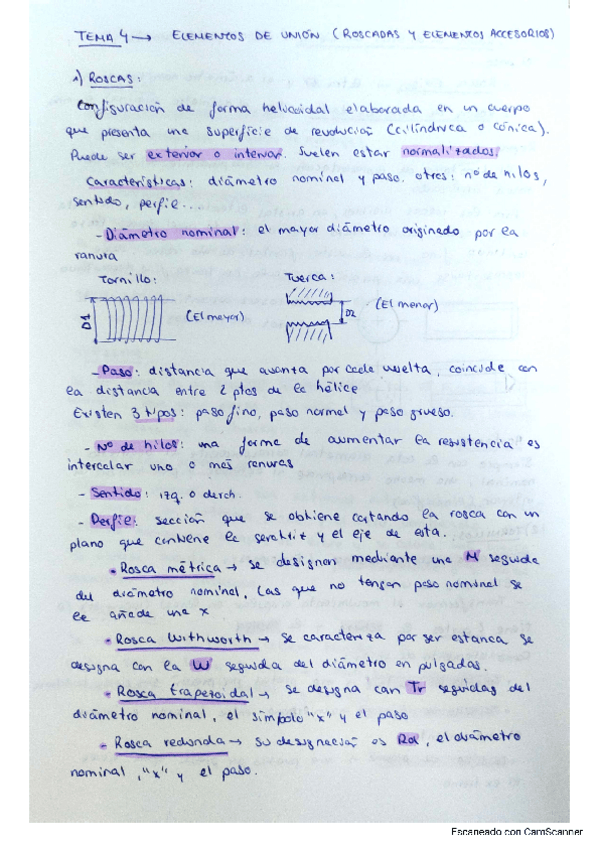 TEMA 4 → ELEMENTOS DE UNIÓN (ROSCADAS Y ELEMENTOS ACCESORIOS)
1) ROSCAS:
Configuración de forma helicoidal elaborada en un cuerpo
que presenta una superficie de revolución (cilíndrica o cónica).
Puede ser exterior o interior. Suelen estar normalizados.
Características: diámetro nominal y paso. otros: nº de hilos,
sentido, perfil...
- Diámetro nominal: el mayor diámetro originado por la
ranura
Tornillo:
Tuerca:
D1
(El mayor)
D2
(El menor)
- Paso: distancia que avanza por cada vuelta, coincide con
la distancia entre 2 ptos de la hélice
Existen 3 tipos: paso fino, paso normal y paso grueso.
- Nº de hilos: una forma de aumentar la resistencia es
intercalar uno o más ranuras
- Sentido: izq. o derch.
- Perfil: sección que se obtiene cortando la rosca con un
plano que contiene la generatriz y el eje de esta.
• Rosca métrica → se designan mediante una M seguida
del diámetro nominal. Las que no tengan paso nominal se
le añade una x
• Rosca Withworth → se caracteriza por ser estanca se
designa con la W seguida del diámetro en pulgadas.
• Rosca trapezoidal → se designa con Tr seguidas del
diámetro nominal, el símbolo "x" y el paso
• Rosca redonda → su designación es Rd, el diámetro
nominal, "x" y el paso.
Escaneado con CamScanner